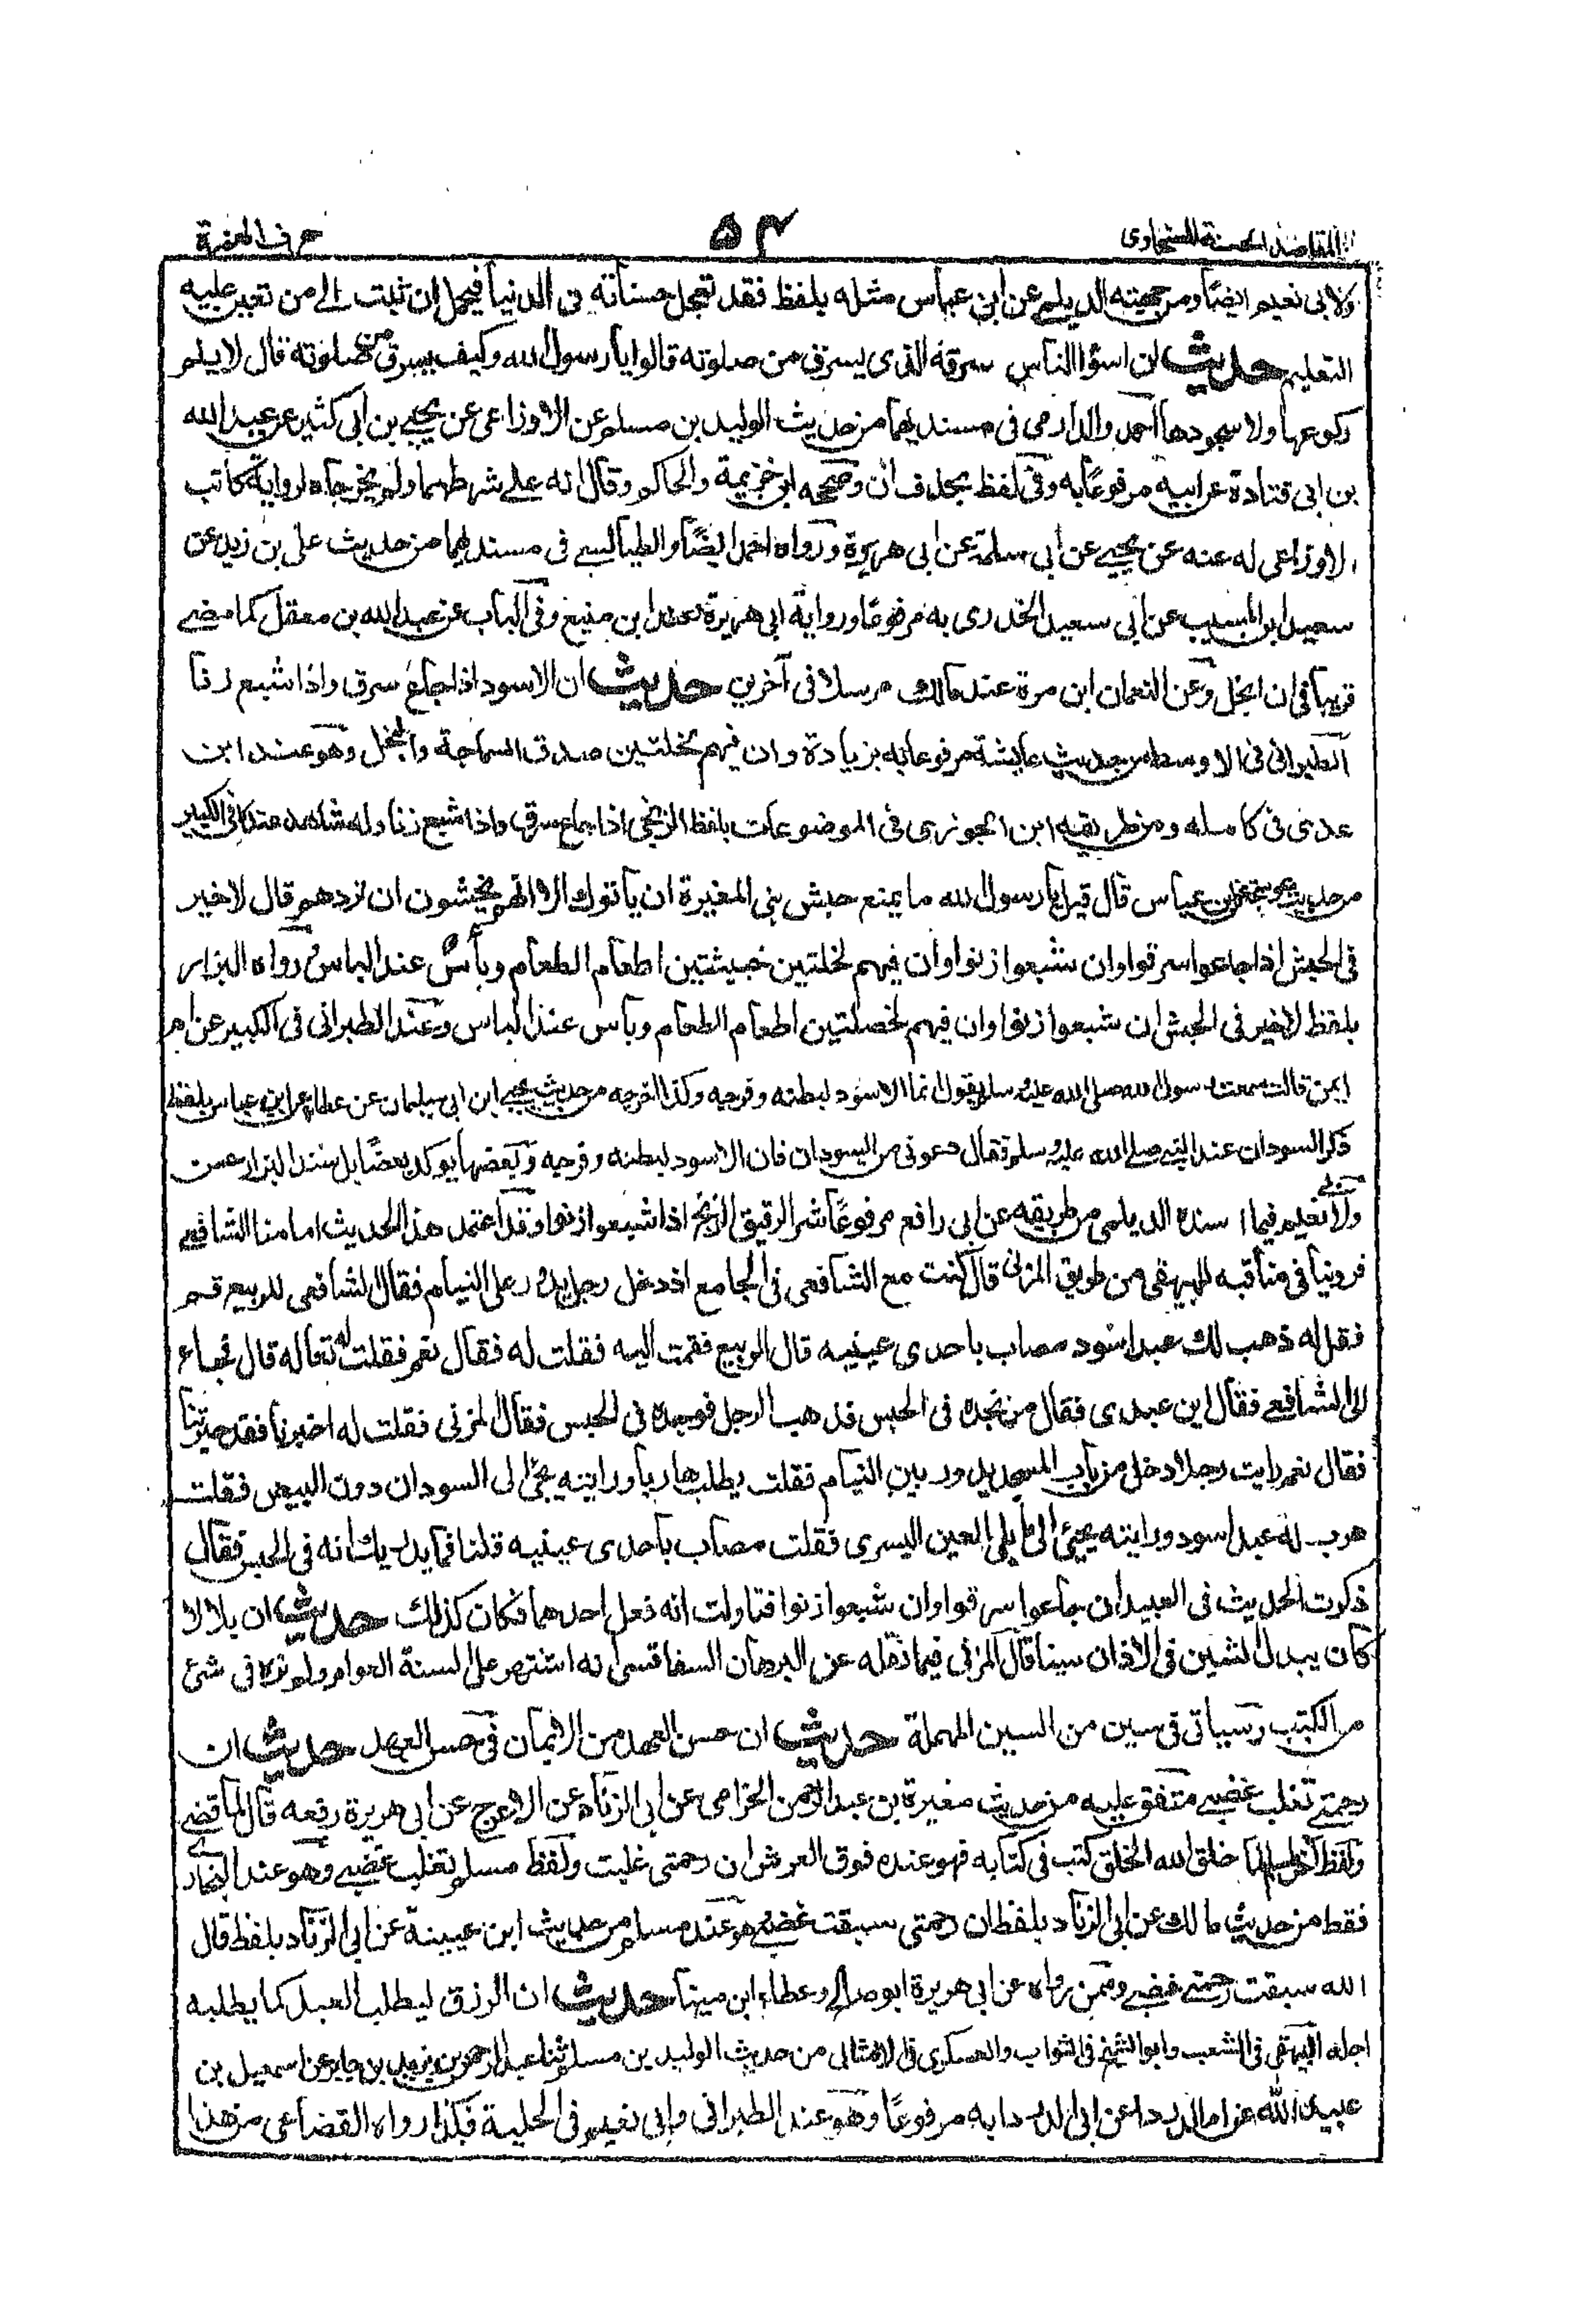 المقاصد الحسنة للسخاوی
۵۴
حرف الهمزة
ولابی نعیم ایضًا ومن جهته الدیلمی عن ابن عباس مثله بلفظ فقد تعجل حسناته فی الدنیا فیحمل ان ثبت علی من تعین علیه
التعلیم حدیث ان اسوٴ الناس سرقة الذی یسرق من صلوته قالوا یا رسول الله وکیف یسرق من صلوته قال لا یتم
رکوعها ولا سجودها احمد والدارمی فی مسندیهما من حدیث الولید بن مسلم عن الاوزاعی عن یحیی بن ابی کثیر عن عبد الله
بن ابی قتادة عن ابیه مرفوعًا به وفی لفظ بحذف ان وصححه ابن خزیمة والحاکم وقال انه علی شرطهما ولم یخرجاه لروایة کاتب
الاوزاعی له عنه عن یحیی عن ابی سلمة عن ابی هریرة ورواه احمد ایضًا والطیالسی فی مسندیهما من حدیث علی بن زید عن
سعید ابن المسیب عن ابی سعید الخدری به مرفوعًا وروایة ابی هریرة عند ابن منیع وفی الباب عن عبد الله بن معقل کما مضی
قریبا فی ان ابخل وعن النعمان ابن مرة عند مالک مرسلا فی آخرین حدیث ان الاسود اذا جاع سرق واذا شبع زنا
الطبرانی فی الاوسط من حدیث عایشة مرفوعا به بزیادة وان فیهم لخلتین صدق السماحة والبخل وهو عند ابن
عدی فی کامله ومن طریقه ابن الجوزی فی الموضوعات بلفظ الزنجی اذا جاع سرق واذا شبع زنا وله شاهد عند فی الکبیر
من حدیث عن ابن عباس قال قیل یا رسول الله ما یمنع حبش بنی المغیرة ان یاتوک الا انهم یخشون ان تردهم قال لا خیر
فی الحبش اذا جاعوا سرقوا وان شبعوا زنوا وان فیهم لخلتین خبیثتین اطعام الطعام وبأسٌ عند الباس رواه البزار
بلفظ لا خیر فی الحبش ان شبعوا زنوا وان فیهم لخصلتین اطعام الطعام وبأس عند الباس وعند الطبرانی فی الکبیر عن ام
ایمن قالت سمعت رسول الله صلی الله علیه وسلم یقول انما الاسود لبطنه وفرجه وکذا اخرجه من حدیث یحیی ابن ابی سلیمان عن عطاء عن ابن عباس بلفظ
ذکر السودان عند النبی صلی الله علیه وسلم فقال دعونی من السودان فان الاسود لبطنه وفرجه وبعضها یوکد بعضًا بل سند البزار حسن
ولابی نعیم فیما اسنده الدیلمی من طریقه عن ابی رافع مرفوعًا شر الرقیق الزنج اذا شبعوا زنوا وقد اعتمد هذا الحدیث امامنا الشافعی
فروینا فی مناقبه للبیهقی من طریق المزنی قال کنت مع الشافعی فی الجامع اذ دخل رجل یدور علی النیام فقال الشافعی للربیع قم
فقل له ذهب لک عبد اسود مصاب باحدی عینیه قال الربیع فقمت الیه فقلت له فقال نعم فقلت له تعاله قال فجاء
الی الشافعی فقال این عبدی فقال من تجده فی الحبس فذهب الرجل فوجده فی الحبس فقال المزنی فقلت له اخبرنا فقد حیرتنا
فقال نعم رایت رجلا دخل من باب المسجد یدور بین النیام فقلت یطلب هاربا ورایته یجئ الی السودان دون البیض فقلت
هرب له عبد اسود ورایته یجئ الی ما یلی العین الیسری فقلت مصاب باحدی عینیه قلنا فما یدریک انه فی الحبس فقال
ذکرت الحدیث فی العبید ان جاعوا سرقوا وان شبعوا زنوا فتاولت انه فعل احدهما فکان کذلک حدیث ان بلالا
کان یبدل الشین فی الاذان سینا قال المزنی فیما نقله عن البرهان السفاقسی انه اشتهر علی السنة العوام ولم نره فی شئ
من الکتب وسیاتی فی سین من السین المهملة حدیث ان حسن العهد من الایمان فی حسن العهد حدیث ان
رحمتی تغلب غضبی متفق علیه من حدیث مغیرة بن عبد الرحمن الحزامی عن ابی الزناد عن الاعرج عن ابی هریرة رفعه قال لما قضی
ولفظ لما خلق الله الخلق کتب فی کتابه فهو عنده فوق العرش ان رحمتی غلبت ولفظ مسلم تغلب غضبی وهو عند البخاری
فقط من حدیث مالک عن ابی الزناد بلفظ ان رحمتی سبقت غضبی وهو عند مسلم من حدیث ابن عیینة عن ابی الزناد بلفظ قال
الله سبقت رحمتی غضبی وممن رواه عن ابی هریرة ابو صالح وعطاء ابن میناء حدیث ان الرزق لیطلب العبد کما یطلبه
اجله البیهقی فی الشعب وابو الشیخ فی الثواب والعسکری فی الامثال من حدیث الولید بن مسلم ثنا عبد الرحمن بن یزید بن جابر عن اسمعیل بن
عبید الله عن ام الدرداء عن ابی الدرداء به مرفوعًا وهو عند الطبرانی وابی نعیم فی الحلیة فکذا رواه القضاعی من هذا